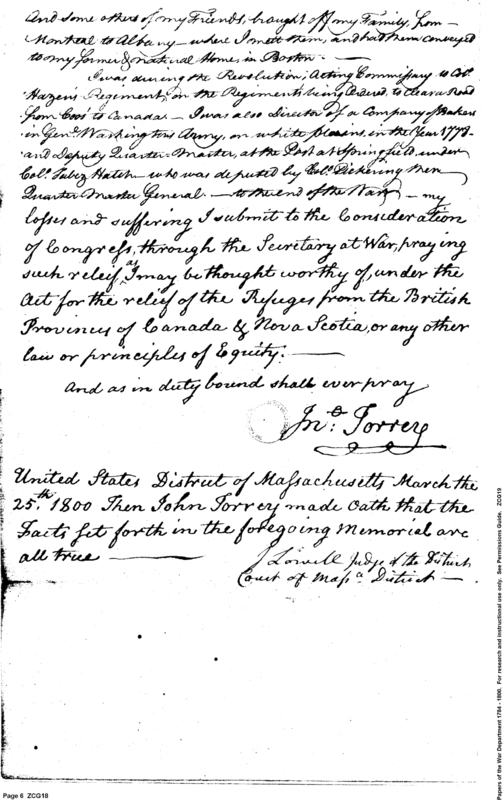 And some others of my Friends, brought off my Family, from
Montreal to Albany — where I meet them, and had them conveyed
to my former & natural Home in Boston. —
I was during the Revolution, Acting Commissary to Col.
Hazen's Regiment, on the Regiments being Ordered to Clear a Road
from Coos to Canada — I was also Director of a Company of Bakers
in Genl. Washingtons Army, on white plaens, in the Year 1778 —
and Deputy Quarter Master, at the Post at Springfield, under
Col. Hatch — who was deputed by Col. Pickering then
Quarter Master General — to the end of the War — my
losses and suffering I submit to the Consideration
of Congress, through the Secretary at War, praying
such releif, as I may be thought worthy of, under the
Act for the relief of the Refuges from the British
Provinces of Canada & Nova Scotia, or any other
law or principles of Equity. —
And as in duty bound shall ever pray
Jno. Torrey
United States District of Massachusetts March the
25th. 1800 Then John Torrey made Oath that the
Facts set forth in the foregoing Memorial are
all true —
J Lowell Judge of the District
Court of Massa. District —
Page 6 ZCG18
Papers of the War Department 1784 - 1800. For research and instructional use only. See Permissions Guide. ZCG19